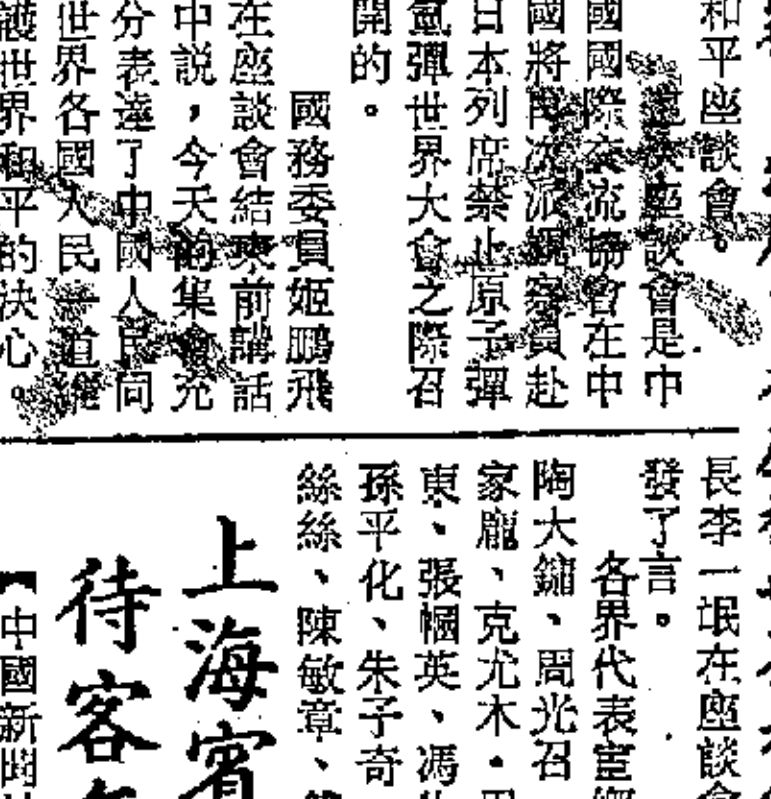 和平座談會。
這次座談會是中
國國際交流協會在中
國將再次派觀察員赴
日本列席禁止原子彈
氫彈世界大會之際召
開的。
國務委員姬鵬飛
在座談會結束前講話
中説，今天的集會充
分表達了中國人民同
世界各國人民一道維
護世界和平的決心。
長李一氓在座談會
發了言。
各界代表宦鄉
陶大鏞、周光召
家龐、克尤木·
東、張幗英、馮
孫平化、朱子奇
絲絲、陳敏章、
上海賓
待客
【中國新聞